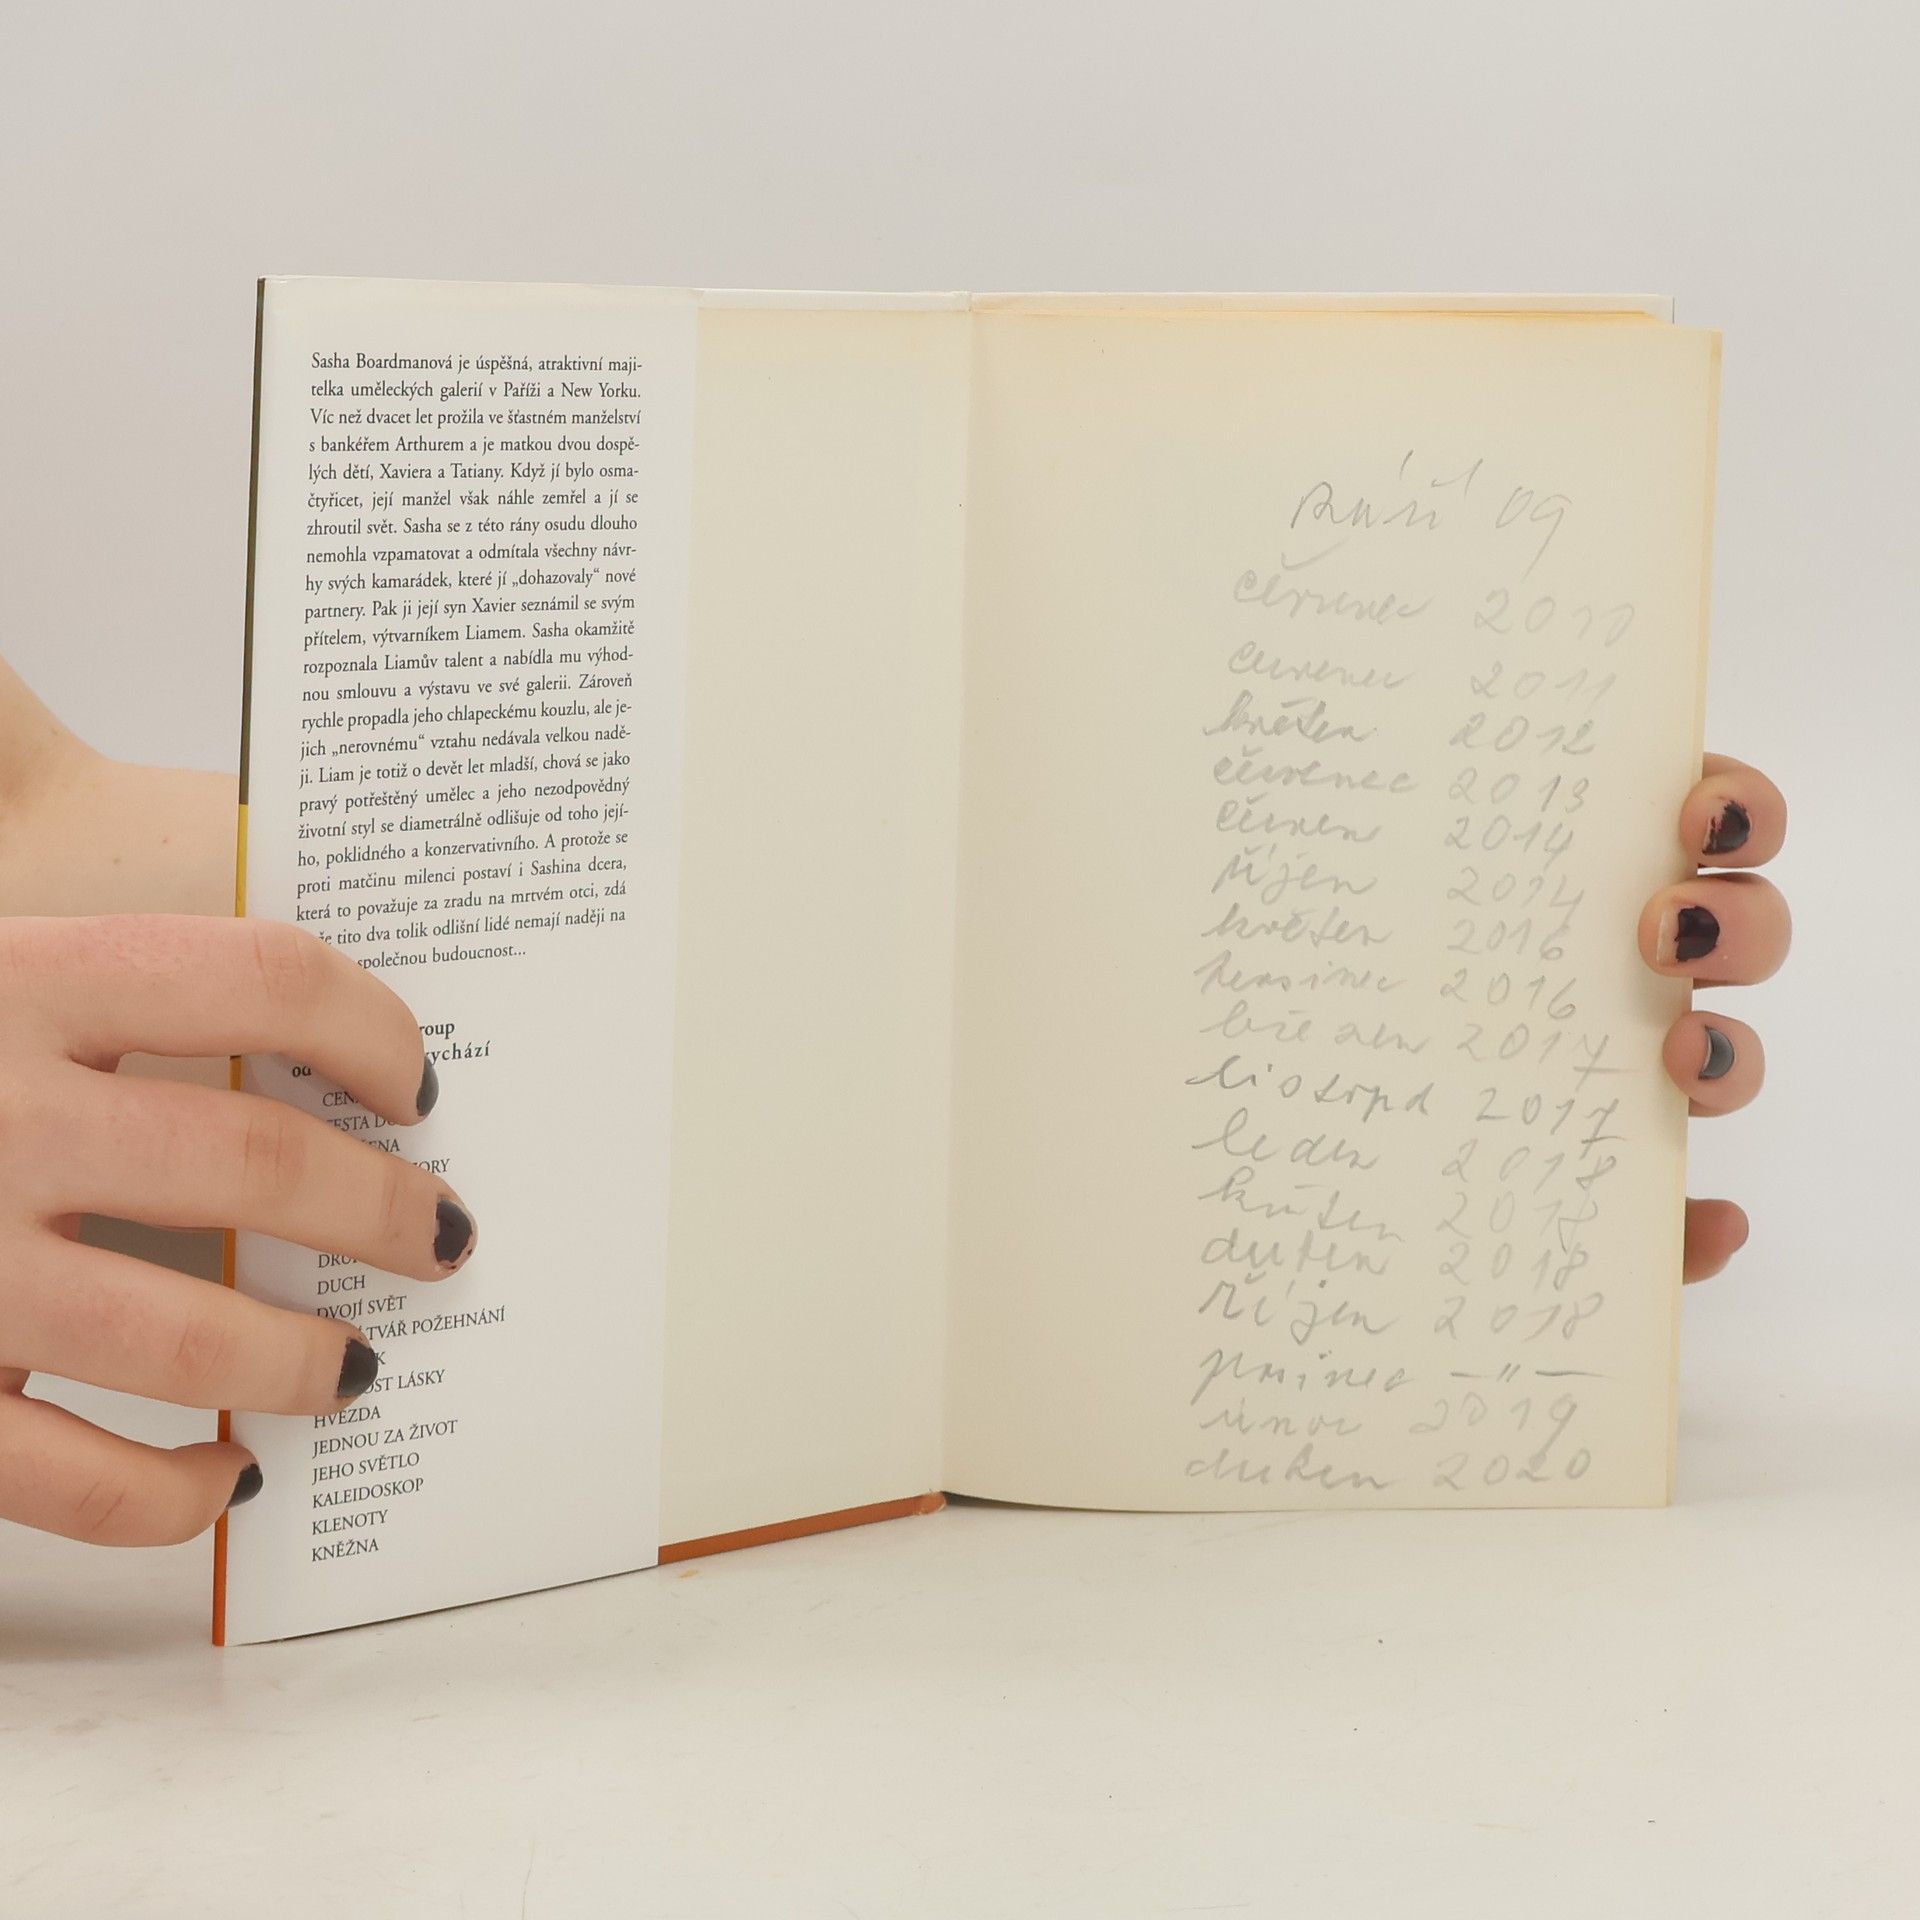 Sasha Boardmanová je úspěšná, atraktivní maji-
telka uměleckých galerií v Paříži a New Yorku.
Víc než dvacet let prožila ve šťastném manželství
s bankéřem Arthurem a je matkou dvou dospě-
lých dětí, Xaviera a Tatiany. Když jí bylo osma-
čtyřicet, její manžel však náhle zemřel a jí se
zhroutil svět. Sasha se z této rány osudu dlouho
nemohla vzpamatovat a odmítala všechny návr-
hy svých kamarádek, které jí „dohazovaly“ nové
partnery. Pak ji její syn Xavier seznámil se svým
přítelem, výtvarníkem Liamem. Sasha okamžitě
rozpoznala Liamův talent a nabídla mu výhod-
nou smlouvu a výstavu ve své galerii. Zároveň
rychle propadla jeho chlapeckému kouzlu, ale je-
jich „nerovnému“ vztahu nedávala velkou nadě-
ji. Liam je totiž o devět let mladší, chová se jako
pravý potřeštěný umělec a jeho nezodpovědný
životní styl se diametrálně odlišuje od toho její-
ho, poklidného a konzervativního. A protože se
proti matčinu milenci postaví i Sashina dcera,
která to považuje za zradu na mrtvém otci, zdá
tito dva tolik odlišní lidé nemají naději na
společnou budoucnost...
DUCH
DVOJÍ SVĚT
TVÁŘ POŽEHNÁNÍ
LÁSKY
HVĚZDA
JEDNOU ZA ŽIVOT
JEHO SVĚTLO
KALEIDOSKOP
KLENOTY
KNĚŽNA
září 09
červenec 2010
červenec 2011
květen 2012
červenec 2013
červen 2014
říjen 2014
květen 2016
2016
březen 2017
listopad 2017
leden 2018
květen 2018
duben 2018
říjen 2018
prosinec —〃—
únor 2019
duben 2020